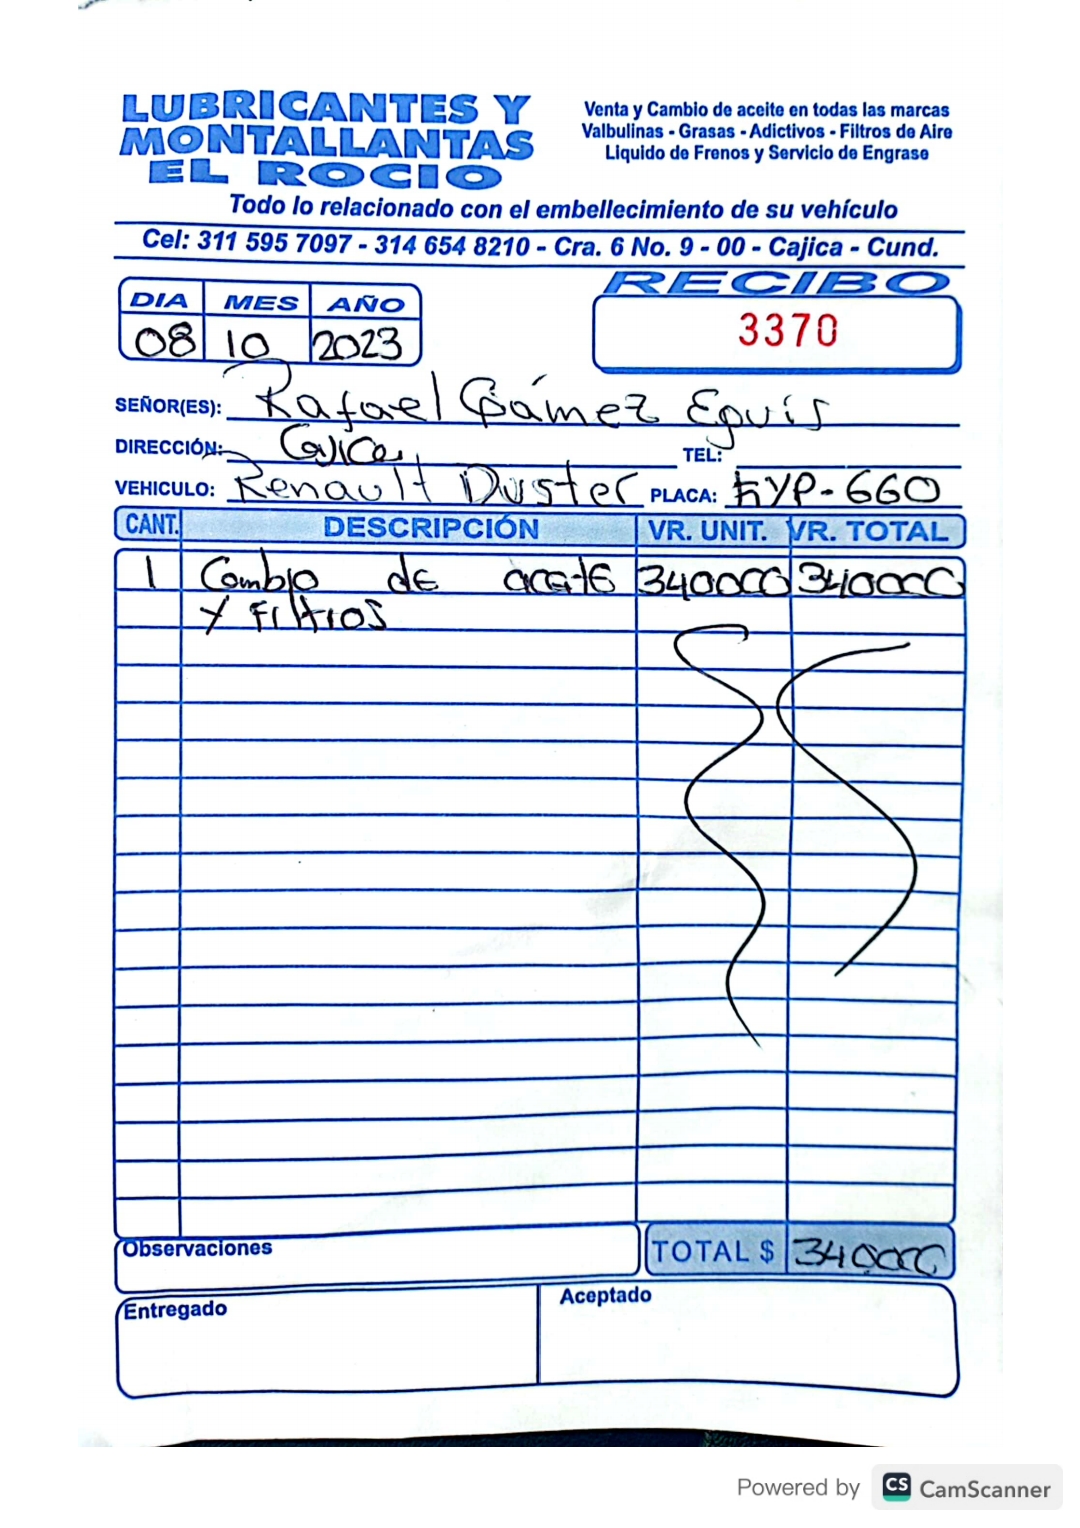 LUBRICANTES Y
MONTALLANTAS
EL ROCIO
Venta y Cambio de aceite en todas las marcas
Valbulinas - Grasas - Adictivos - Filtros de Aire
Liquido de Frenos y Servicio de Engrase
Todo lo relacionado con el embellecimiento de su vehículo
Cel: 311 595 7097 - 314 654 8210 - Cra. 6 No. 9 - 00 - Cajica - Cund.
RECIBO
DIA MES AÑO
3370
08 10 2023
SEÑOR(ES): Rafael Gámez Eguis
DIRECCIÓN: Cajica TEL:
VEHICULO: Renault Duster PLACA: FYP-660
CANT. DESCRIPCIÓN VR. UNIT. VR. TOTAL
1 Cambio de aceite 340000 340000
y Filtros
Observaciones TOTAL $ 340000
Entregado Aceptado
Powered by CS CamScanner